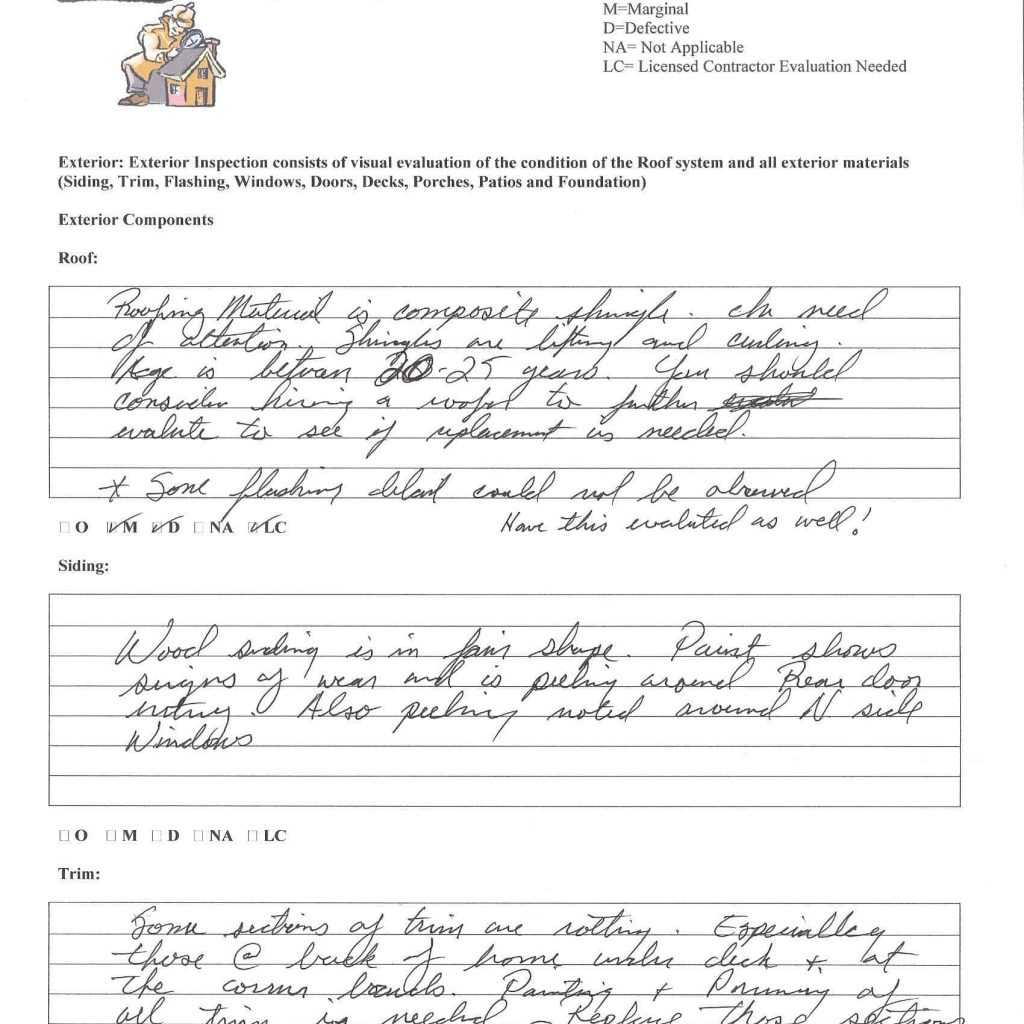 M=Marginal
D=Defective
NA= Not Applicable
LC= Licensed Contractor Evaluation Needed
Exterior: Exterior Inspection consists of visual evaluation of the condition of the Roof system and all exterior materials
(Siding, Trim, Flashing, Windows, Doors, Decks, Porches, Patios and Foundation)
Exterior Components
Roof:
Roofing Material is composite shingle. In need
of attention. Shingles are lifting and curling.
Age is between 20-25 years. You should
consider hiring a to further
evalute to see if replacement is needed.
* Some flashing could not be
☐ O ☑ M ☑ D ☐ NA ☑ LC
Have this evaluted as well!
Siding:
Wood siding is in fair shape. Paint shows
signs of wear and is peeling around Rear door
Also peeling noted around N side
Windows
☐ O ☐ M ☐ D ☐ NA ☐ LC
Trim:
Some sections of trim are rotting. Especially
those @ back of home under deck + at
the corner boards. Painting + of
all trim is needed - Replace those sections